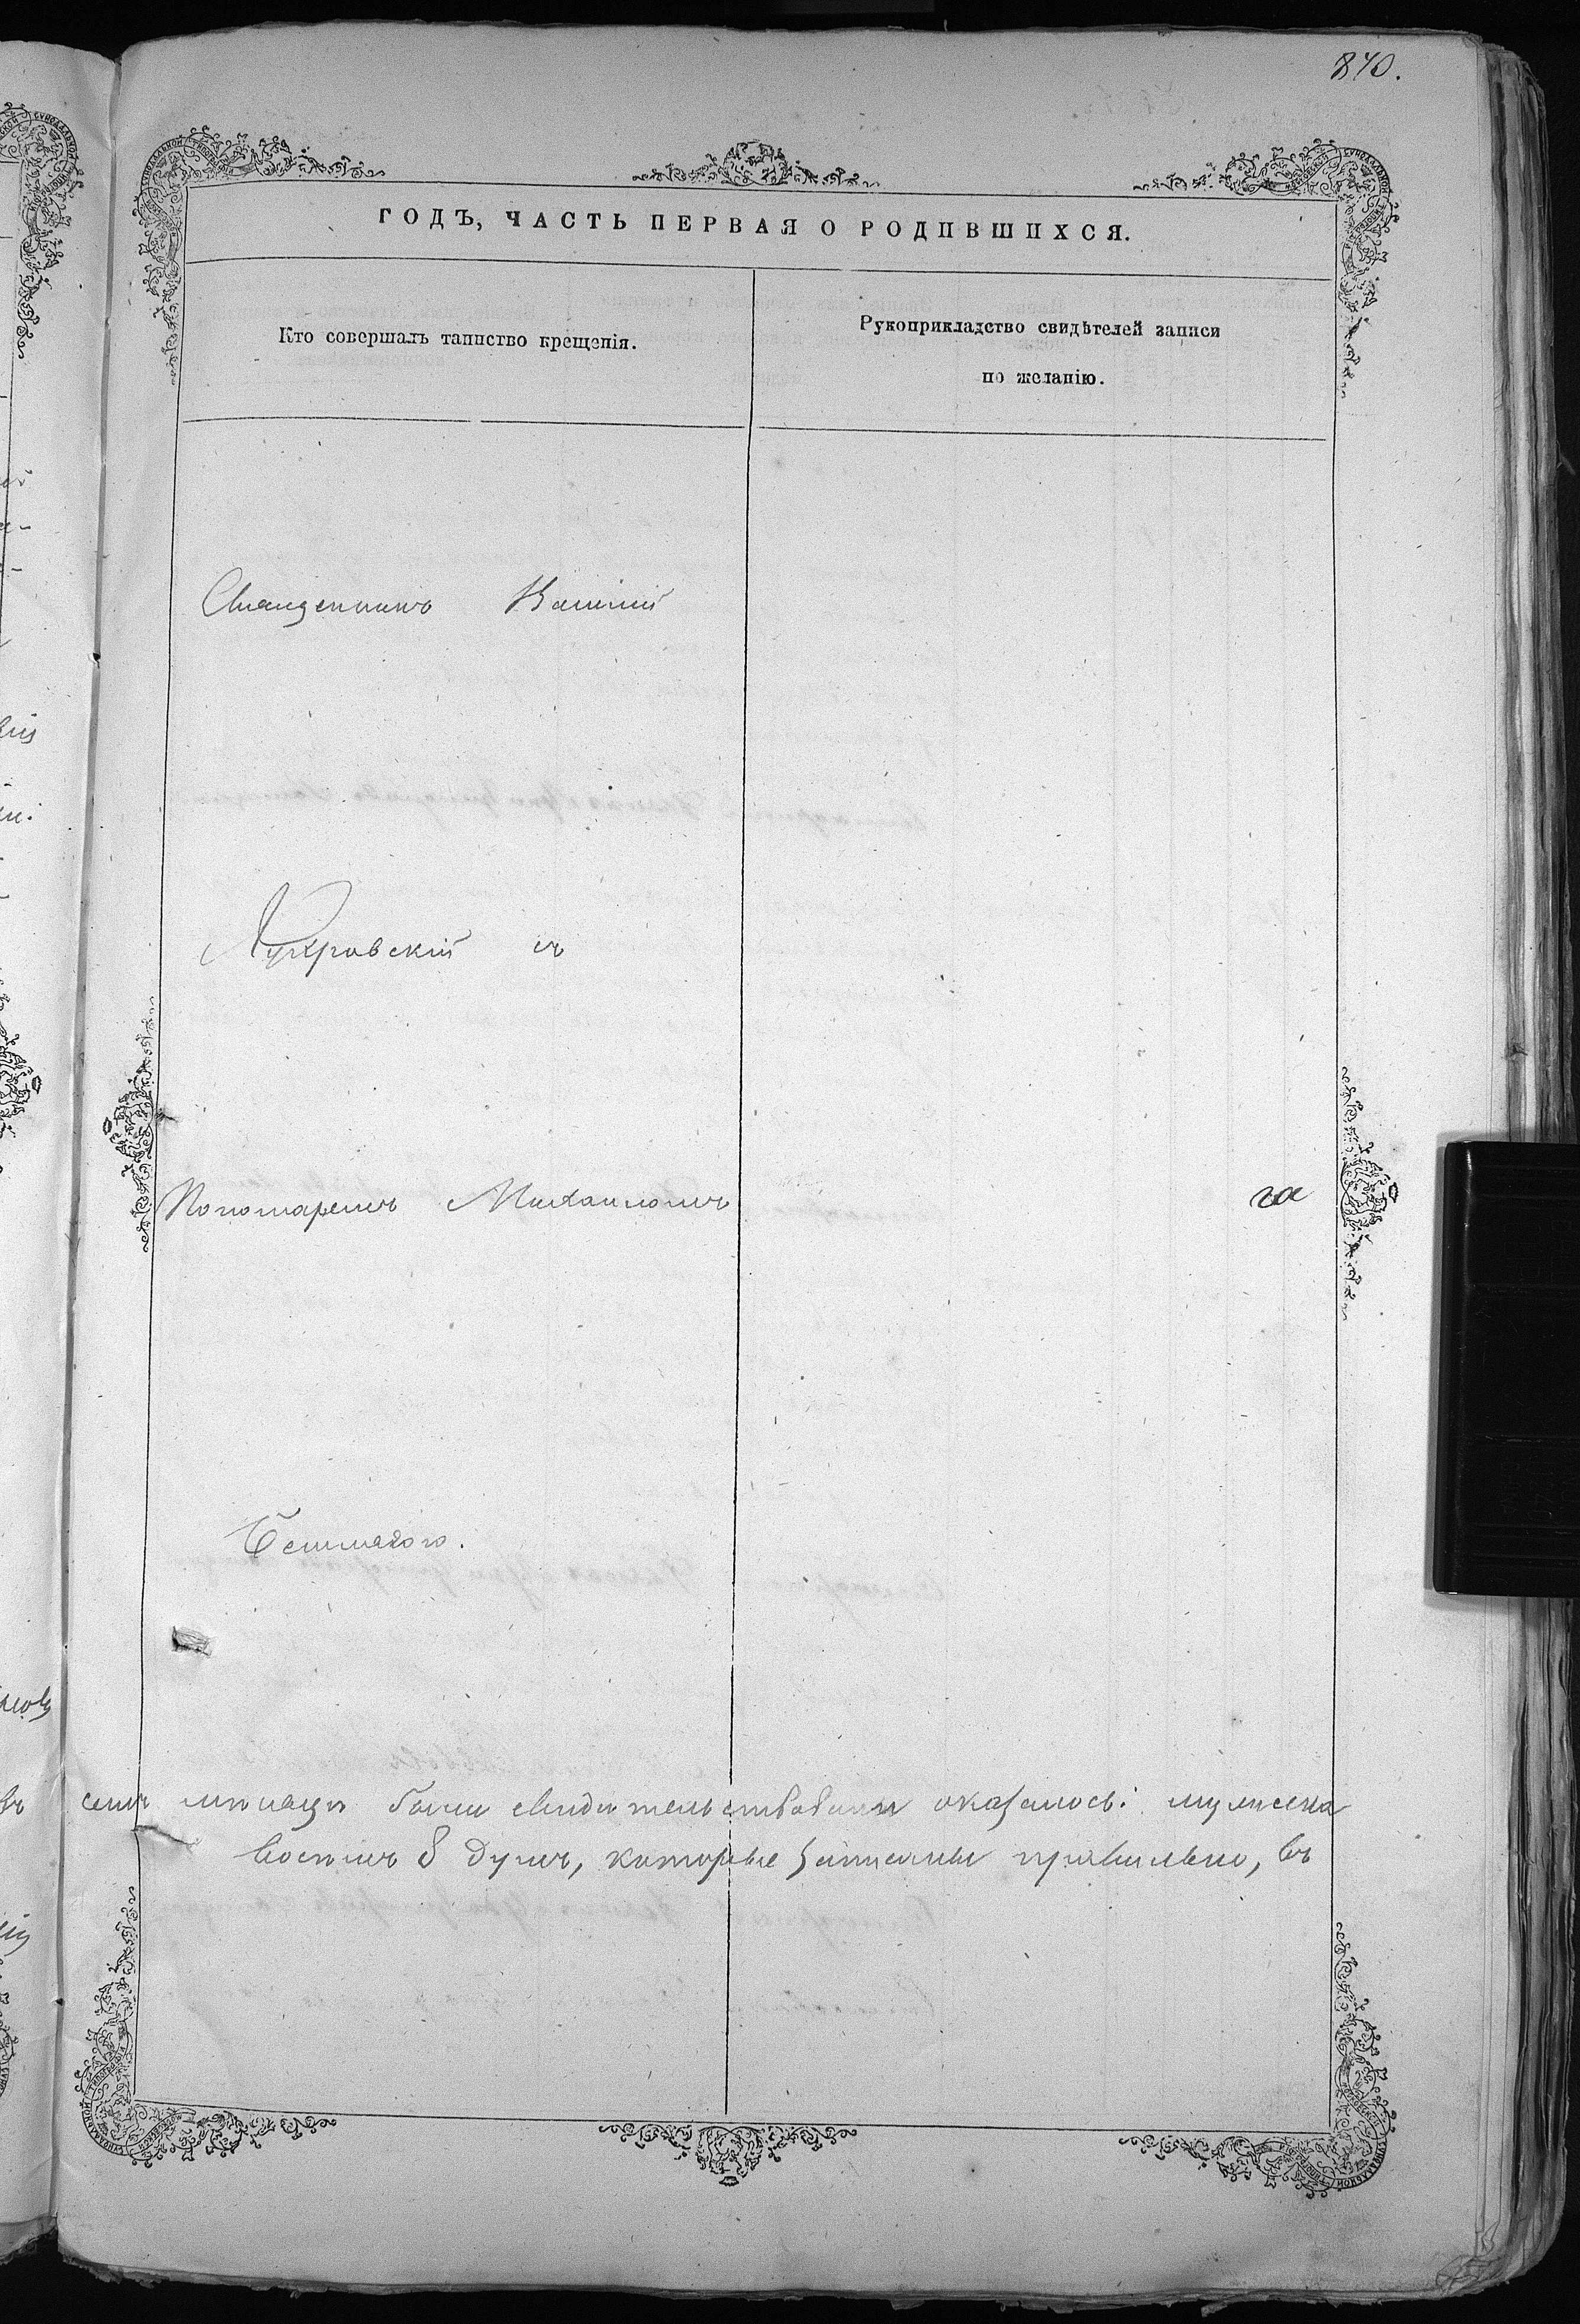 840.
ГОДЪ, ЧАСТЬ ПЕРВАЯ О РОДИВШИХСЯ.
Кто совершалъ таинство крещенія.
Рукоприкладство свидѣтелей записи
по желанію.
Священникъ
съ
Пономаремъ Михаиломъ
га
семъ мѣсяцѣ были свидѣтельствованы оказалось: мужеска
восемь 8 душъ, которые записаны правильно, въ